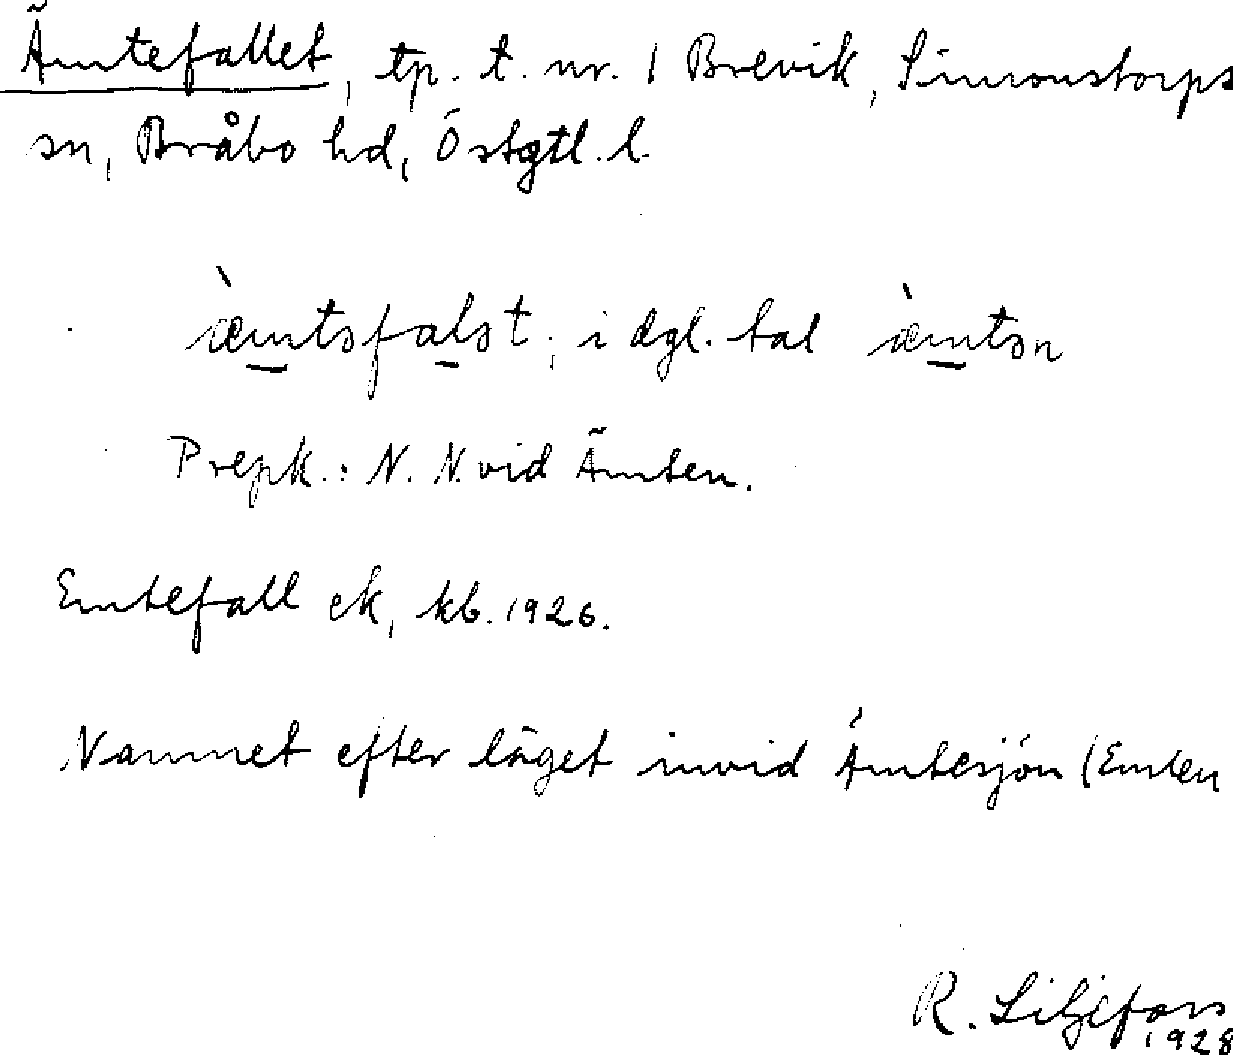 Ämtefallet, tp. t. nr. 1 Brevik, Simonstorps
sn, Bråbo hd, Östgtl. l.
æ̀mtəfalət; i dgl. tal æ̀mtən
Prepk.: N. N. vid Ämten.
Emtefall ek, kb. 1926.
Namnet efter läget invid Ämtesjön (Emten
R. Liljefors
1928